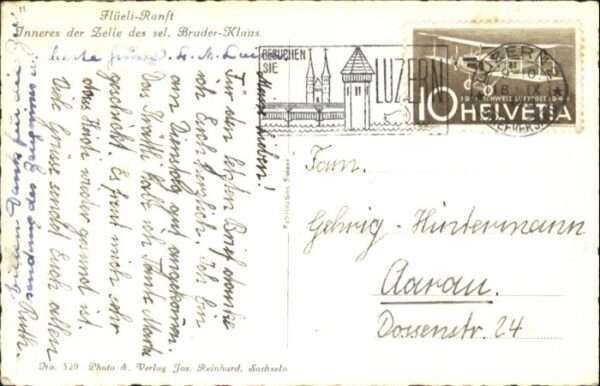 Flüeli-Ranft
Inneres der Zelle des sel. Bruder-Klaus
BESUCHEN
SIE
LUZERN!
LUZERN
1919 SCHWEIZ. LUFTPOST 1944
10 HELVETIA
Meine Lieben!
Für den letzten Brief danke
ich Euch herzlich. Ich bin
am Dienstag gut angekommen.
Von Rütli habe ich Tante Marta
geschickt. Es freut mich sehr
dass Heidi wieder gesund ist.
Viele Grüsse sendet Euch allen
Ruth.
Fam.
Gehrig-Hintermann
Aarau.
Dossenstr. 24
No. 520 Photo & Verlag Jos. Reinhard, Sachseln